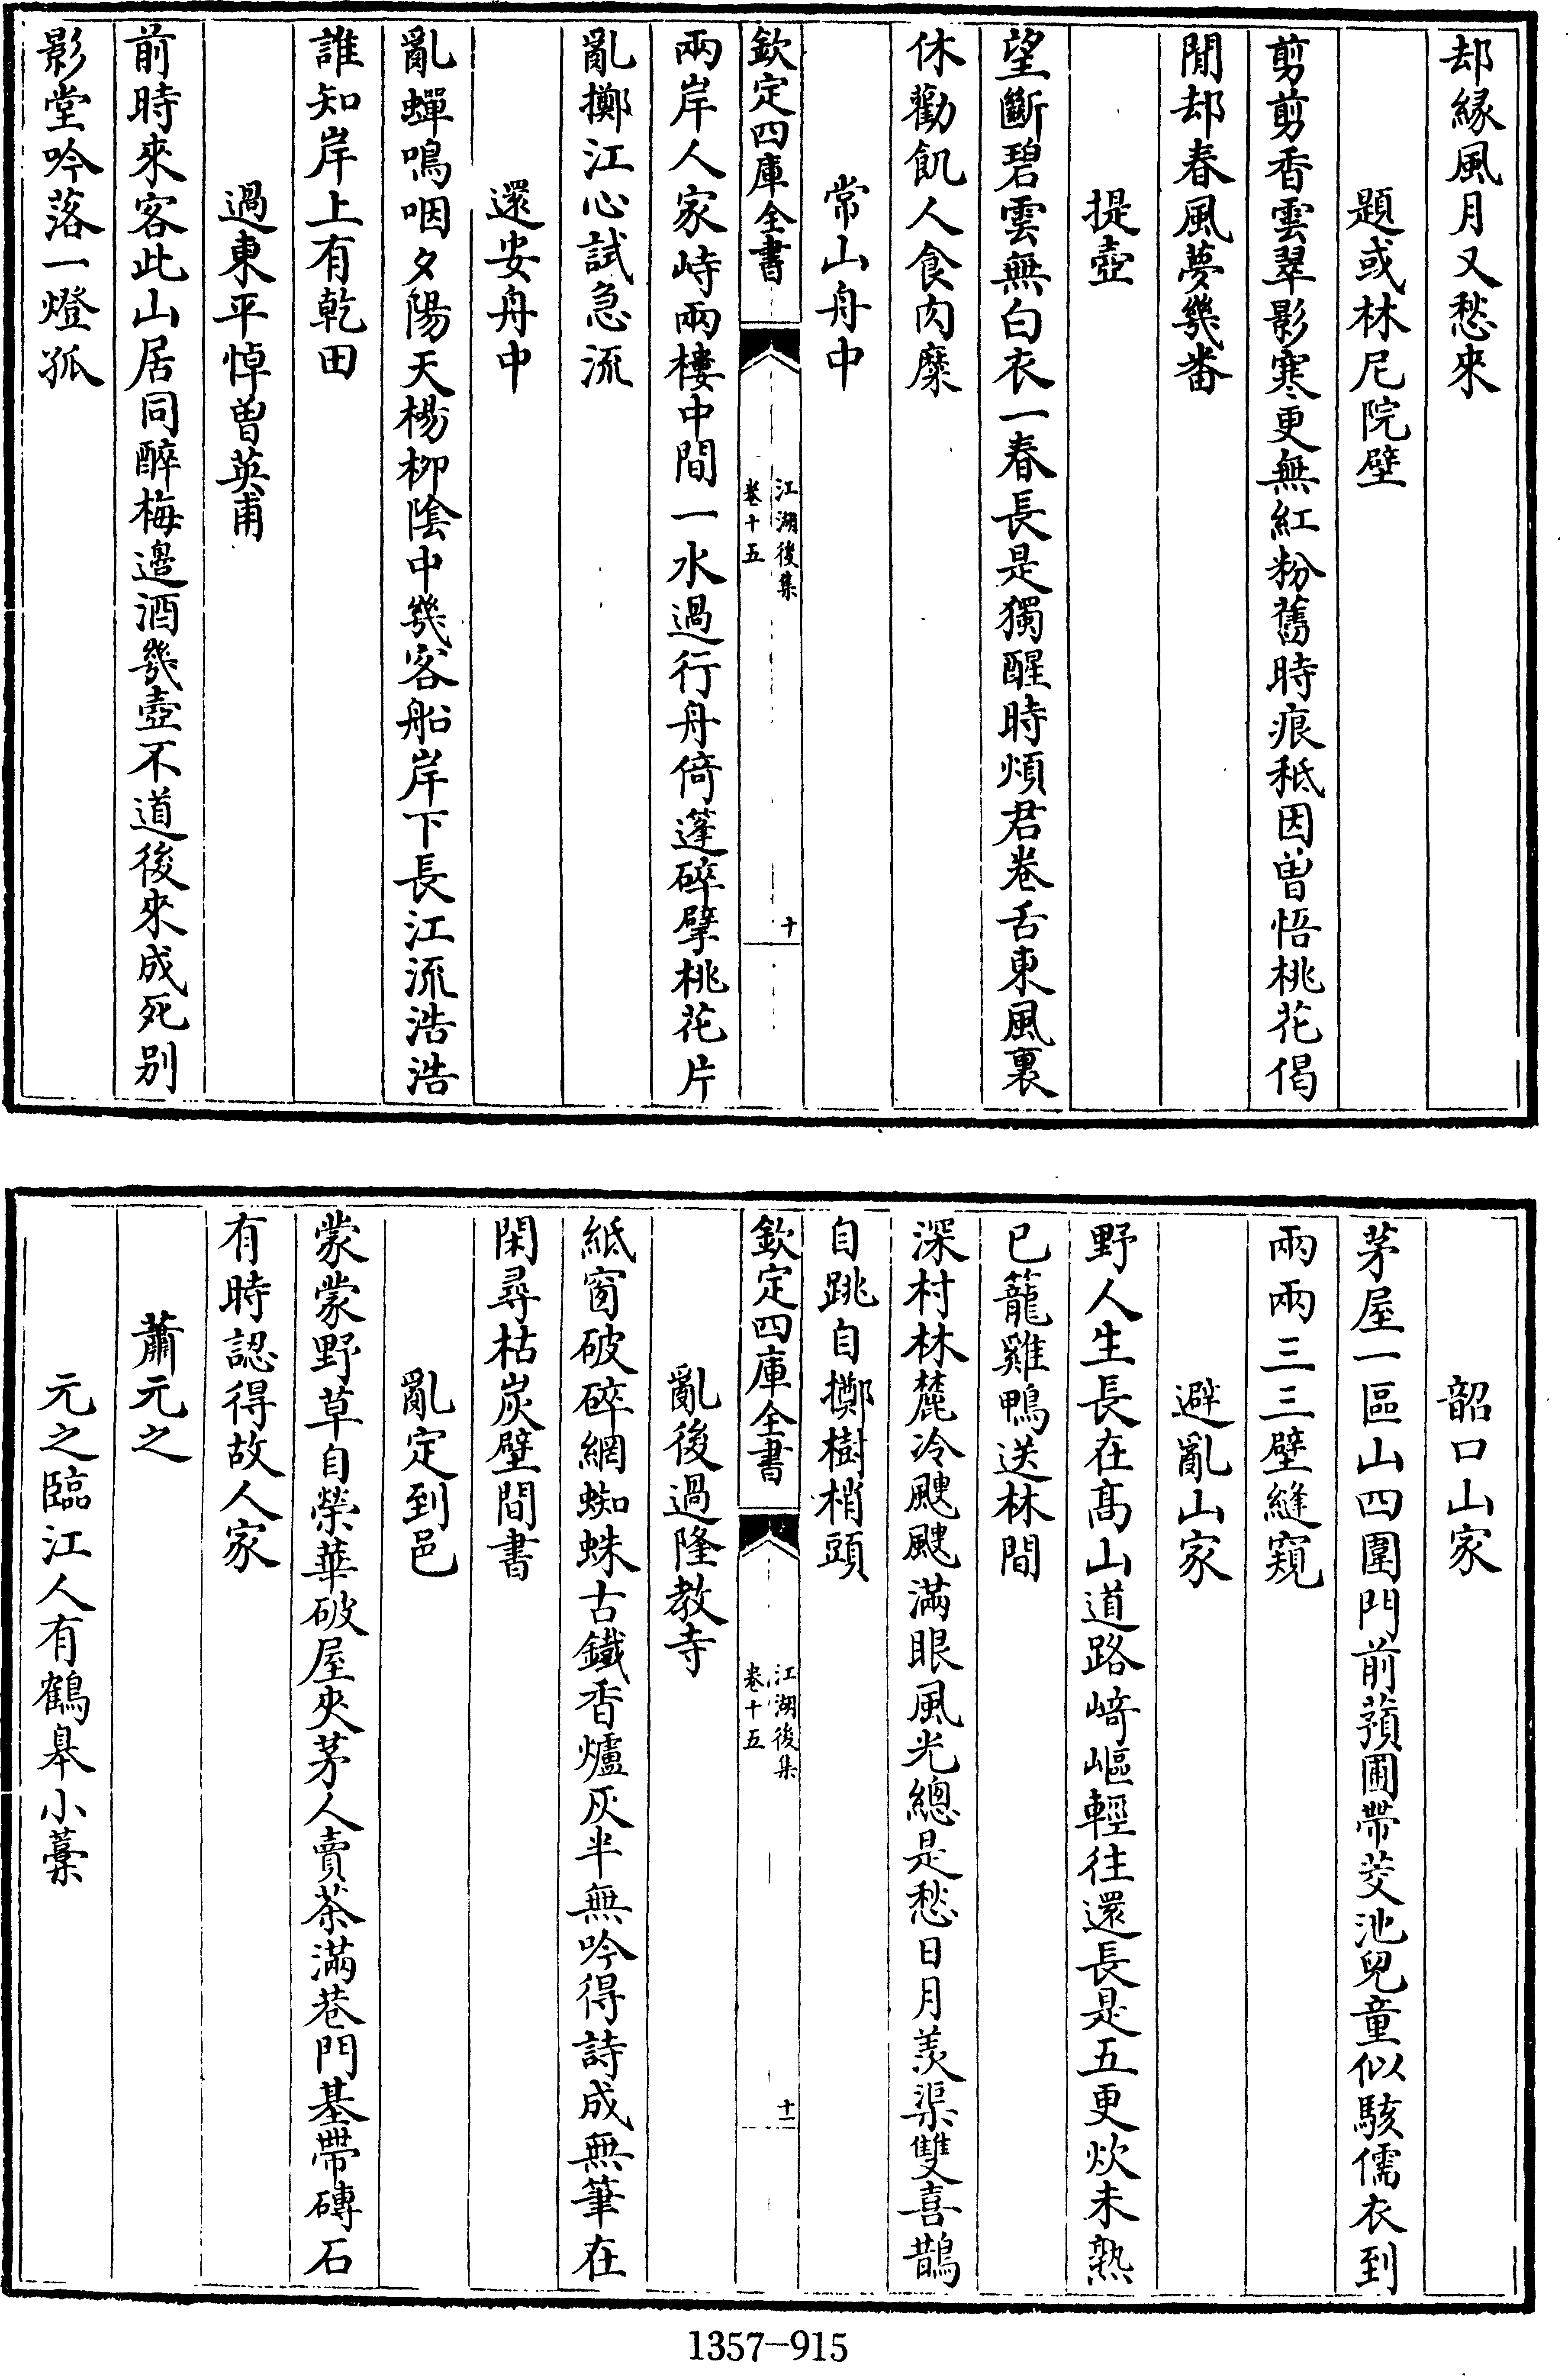 却緣風月又愁來
題或林尼院壁
剪剪香雲翠影寒更無紅粉舊時痕秪因曽悟桃花偈
閒却春風夢幾畨
提壺
望斷碧雲無白衣一春長是獨醒時煩君卷舌東風裏
休勸飢人食肉糜
常山舟中
欽定四庫全書
江湖後集
卷十五
十
兩岸人家峙兩樓中間一水過行舟倚蓬碎擘桃花片
亂擲江心試急流
還安舟中
亂蟬鳴咽夕陽天楊柳陰中幾客船岸下長江流浩浩
誰知岸上有乾田
過東平悼曽英甫
前時來客此山居同醉梅邉酒幾壺不道後來成死别
影堂吟落一燈孤
韶口山家
茅屋一區山四圍門前蘋圃帶芡池兒童似駭儒衣到
兩兩三三壁縫窺
避亂山家
野人生長在髙山道路﨑嶇輕往還長是五更炊未熟
已籠雞鴨送林間
深村林麓冷颼颼滿眼風光總是愁日月羨渠雙喜鵲
自跳自擲樹梢頭
欽定四庫全書
江湖後集
卷十五
十一
亂後過隆教寺
紙窗破碎網蜘蛛古鐵香爐灰半無吟得詩成無筆在
閑尋枯炭壁間書
亂定到邑
蒙蒙野草自榮華破屋夾茅人賣茶滿巷門基帶磚石
有時認得故人家
蕭元之
元之臨江人有鶴皋小藁
1357-915